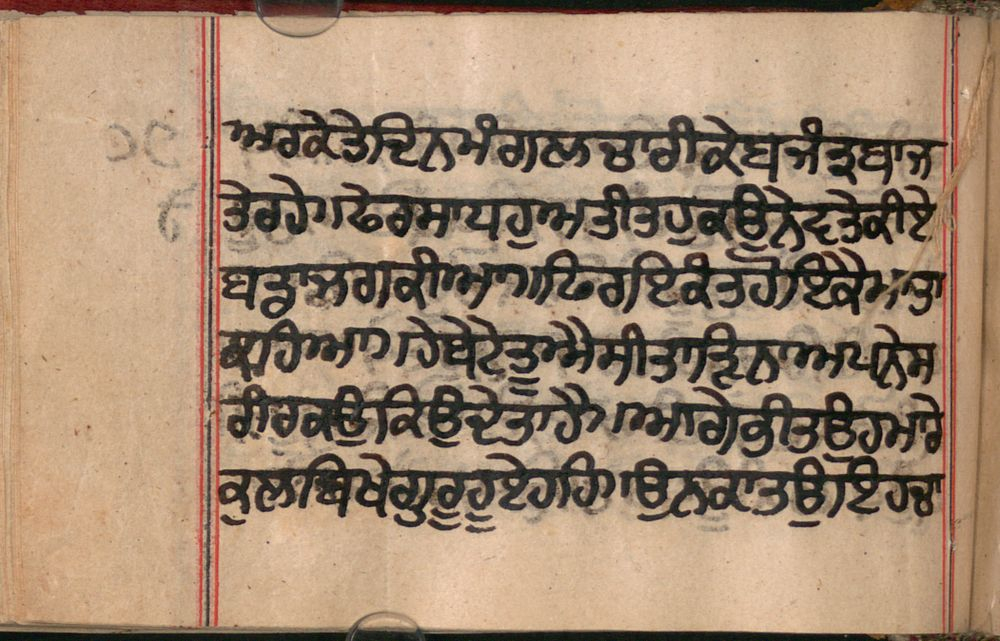 ਅਰਕੇਤੇਦਿਨਮੰਗਲਚਾਰੀਕੇਬਜੰਤ੍ਰਬਾਜ
ਤੇਰਹੇ। ਫੇਰਸਾਧਹੁਅਤੀਤਹੁਕਉਨੇਵਤੇਕੀਏ
ਬਡਾਜਗਕੀਆ॥ਫਿਰਇਕੰਤਹੋਇਕੈਮਾਤਾ
ਕਹਿਆ। ਹੇਬੇਟੇਤੂਐਸੀਤਾੜਿਨਾਅਪਨੇਸ
ਰੀਰਕਉਕਿਉਦੇਤਾਹੈ। ਆਗੇਭੀਤਉਹਮਾਰੇ
ਕੁਲਬਿਖੇਗੁਰੂਹੂਏਹਹਿ। ਉਨਕਾਤਉਇਹਚਾ